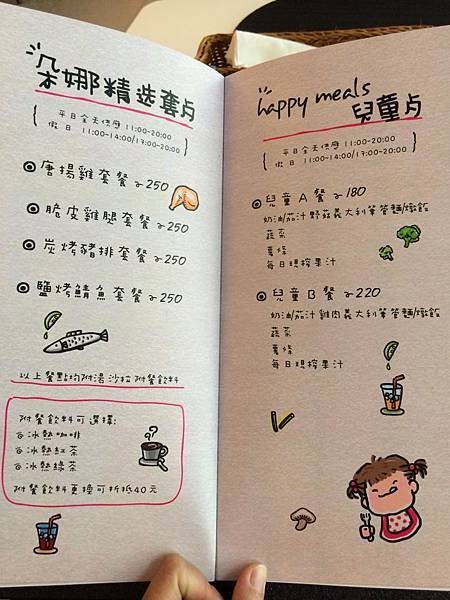 朵娜精选套点
平日全天供應 11:00-20:00
假日 11:00-14:00/17:00-20:00
唐揚雞套餐~250
脆皮雞腿套餐~250
炭烤豬排套餐~250
鹽烤鯖魚套餐~250
以上餐點均附湯沙拉附餐飲料
附餐飲料可選擇:
冰熱咖啡
冰熱紅茶
冰熱綠茶
附餐飲料更換可折抵40元
happy meals
兒童点
平日全天供應 11:00-20:00
假日 11:00-14:00/17:00-20:00
兒童A餐~180
奶油/茄汁野菇義大利筆管麵/燉飯
蔬菜
薯條
每日現榨果汁
兒童B餐~220
奶油/茄汁雞肉義大利筆管麵/燉飯
蔬菜
薯條
每日現榨果汁